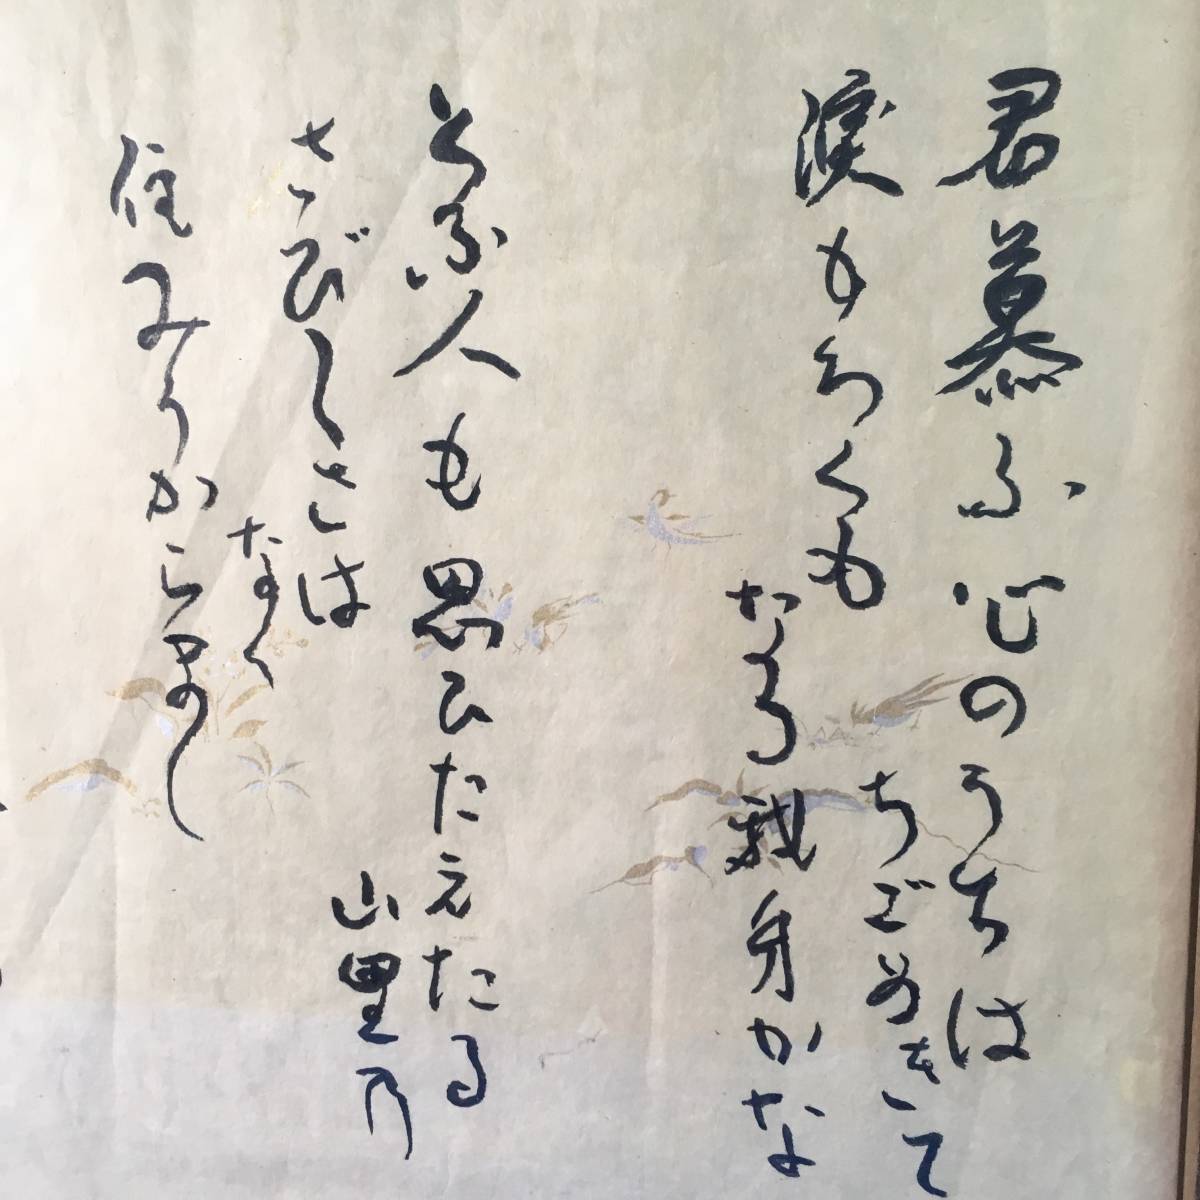 君慕ふ心のうちは
ちゞめきて
涙もろくも
なる我身かな
とふ人も思ひたえたる
山里乃
さびしさは
なくば
住みうからまし